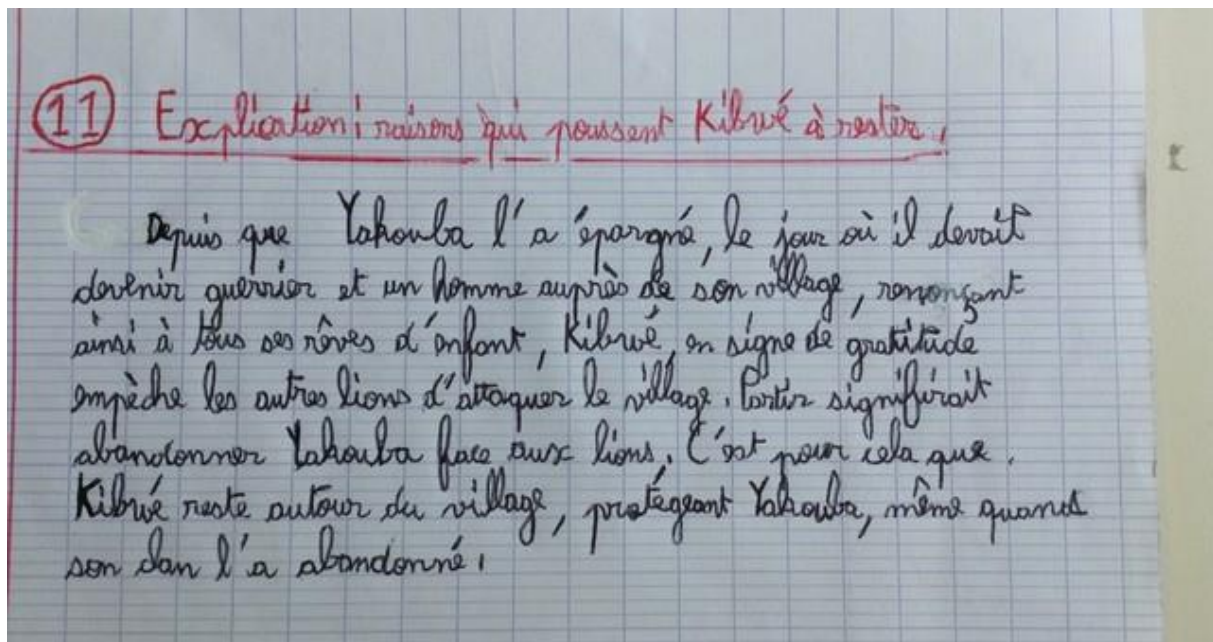 11 Explication : raisons qui poussent Kibwé à rester.
Depuis que Yakouba l'a épargné, le jour où il devait
devenir guerrier et un homme auprès de son village, renonçant
ainsi à tous ses rêves d'enfant, Kibwé, en signe de gratitude
empèche les autres lions d'attaquer le village. Partir signifirait
abandonner Yakouba face aux lions. C'est pour cela que.
Kibwé reste autour du village, protégeant Yakouba, même quand
son clan l'a abandonné.